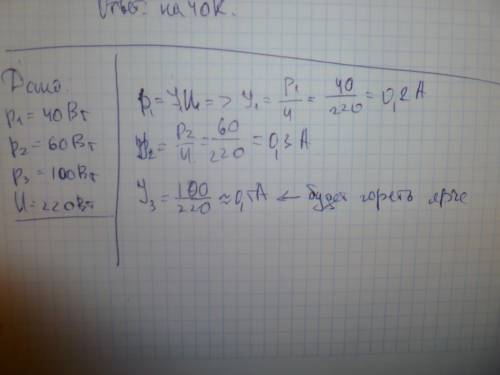 Ответ: на 40К.
Дано:
p₁ = 40Вт
p₂ = 60Вт
p₃ = 100Вт
U = 220Вт
p₁ = JU₁ => J₁ = P₁/U = 40/220 = 0,2 А
J₂ = P₂/U = 60/220 = 0,3 А
J₃ = 100/220 ≈ 0,5А ← будет гореть ярче